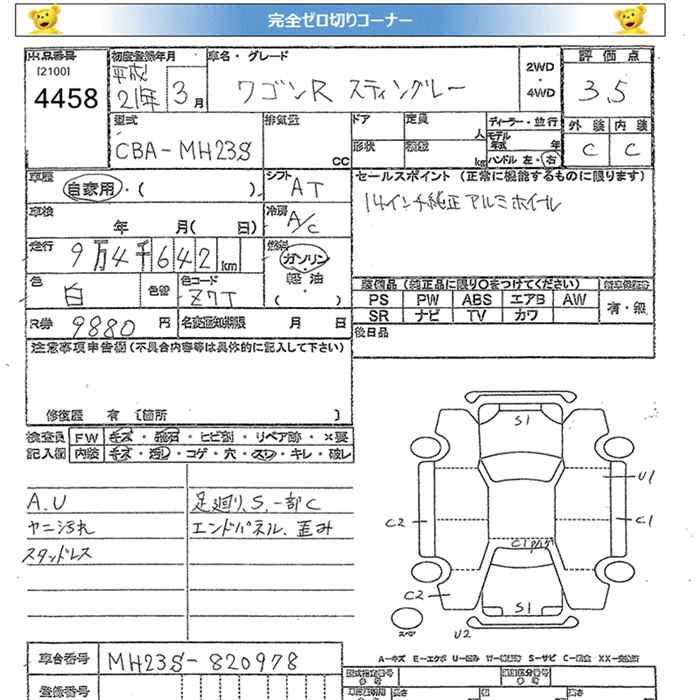 完全ゼロ切りコーナー
出品番号 初度登録年月 車名・グレード 評価点
[2100] 平成
4458 21年 3月 ワゴンR スティングレー 2WD・4WD 3.5
外装 内装
型式 排気量 ドア 定員 ディーラー・並行
CBA-MH23S CC 形状 人 kg モデル年式 年 ハンドル 左・右 C C
車歴 シフト セールスポイント(正常に機能するものに限ります)
自家用・( ) AT 14インチ純正アルミホイール
車検 冷房
年 月( 日) A/C
走行 燃料
9万4千642km ガソリン
色 色替 色コード 軽油
白 Z7T ( )
装備品(純正品に限り○をつけてください)
PS PW ABS エアB AW 有・無
SR ナビ TV カワ
R券 9880円 名変通知期限 月 日
後日品
注意事項申告欄(不具合内容等は具体的に記入して下さい)
修復歴 有 〔箇所 〕
検査員 FW キズ・飛石・ヒビ割・リペア跡・×要
記入欄 内装 キズ・汚レ・コゲ・穴・スレ・キレ・破レ
A.U 足廻り、S、一部C
ヤニ汚れ エンドパネル、歪み
スタッドレス
S1
U1
C2 C1
C1
C2 S1
スペア U2
A－キズ E－エクボ U－凹み W－補修跡 S－サビ C－腐食 XX－交換済
車台番号 MH23S-820978
登録番号